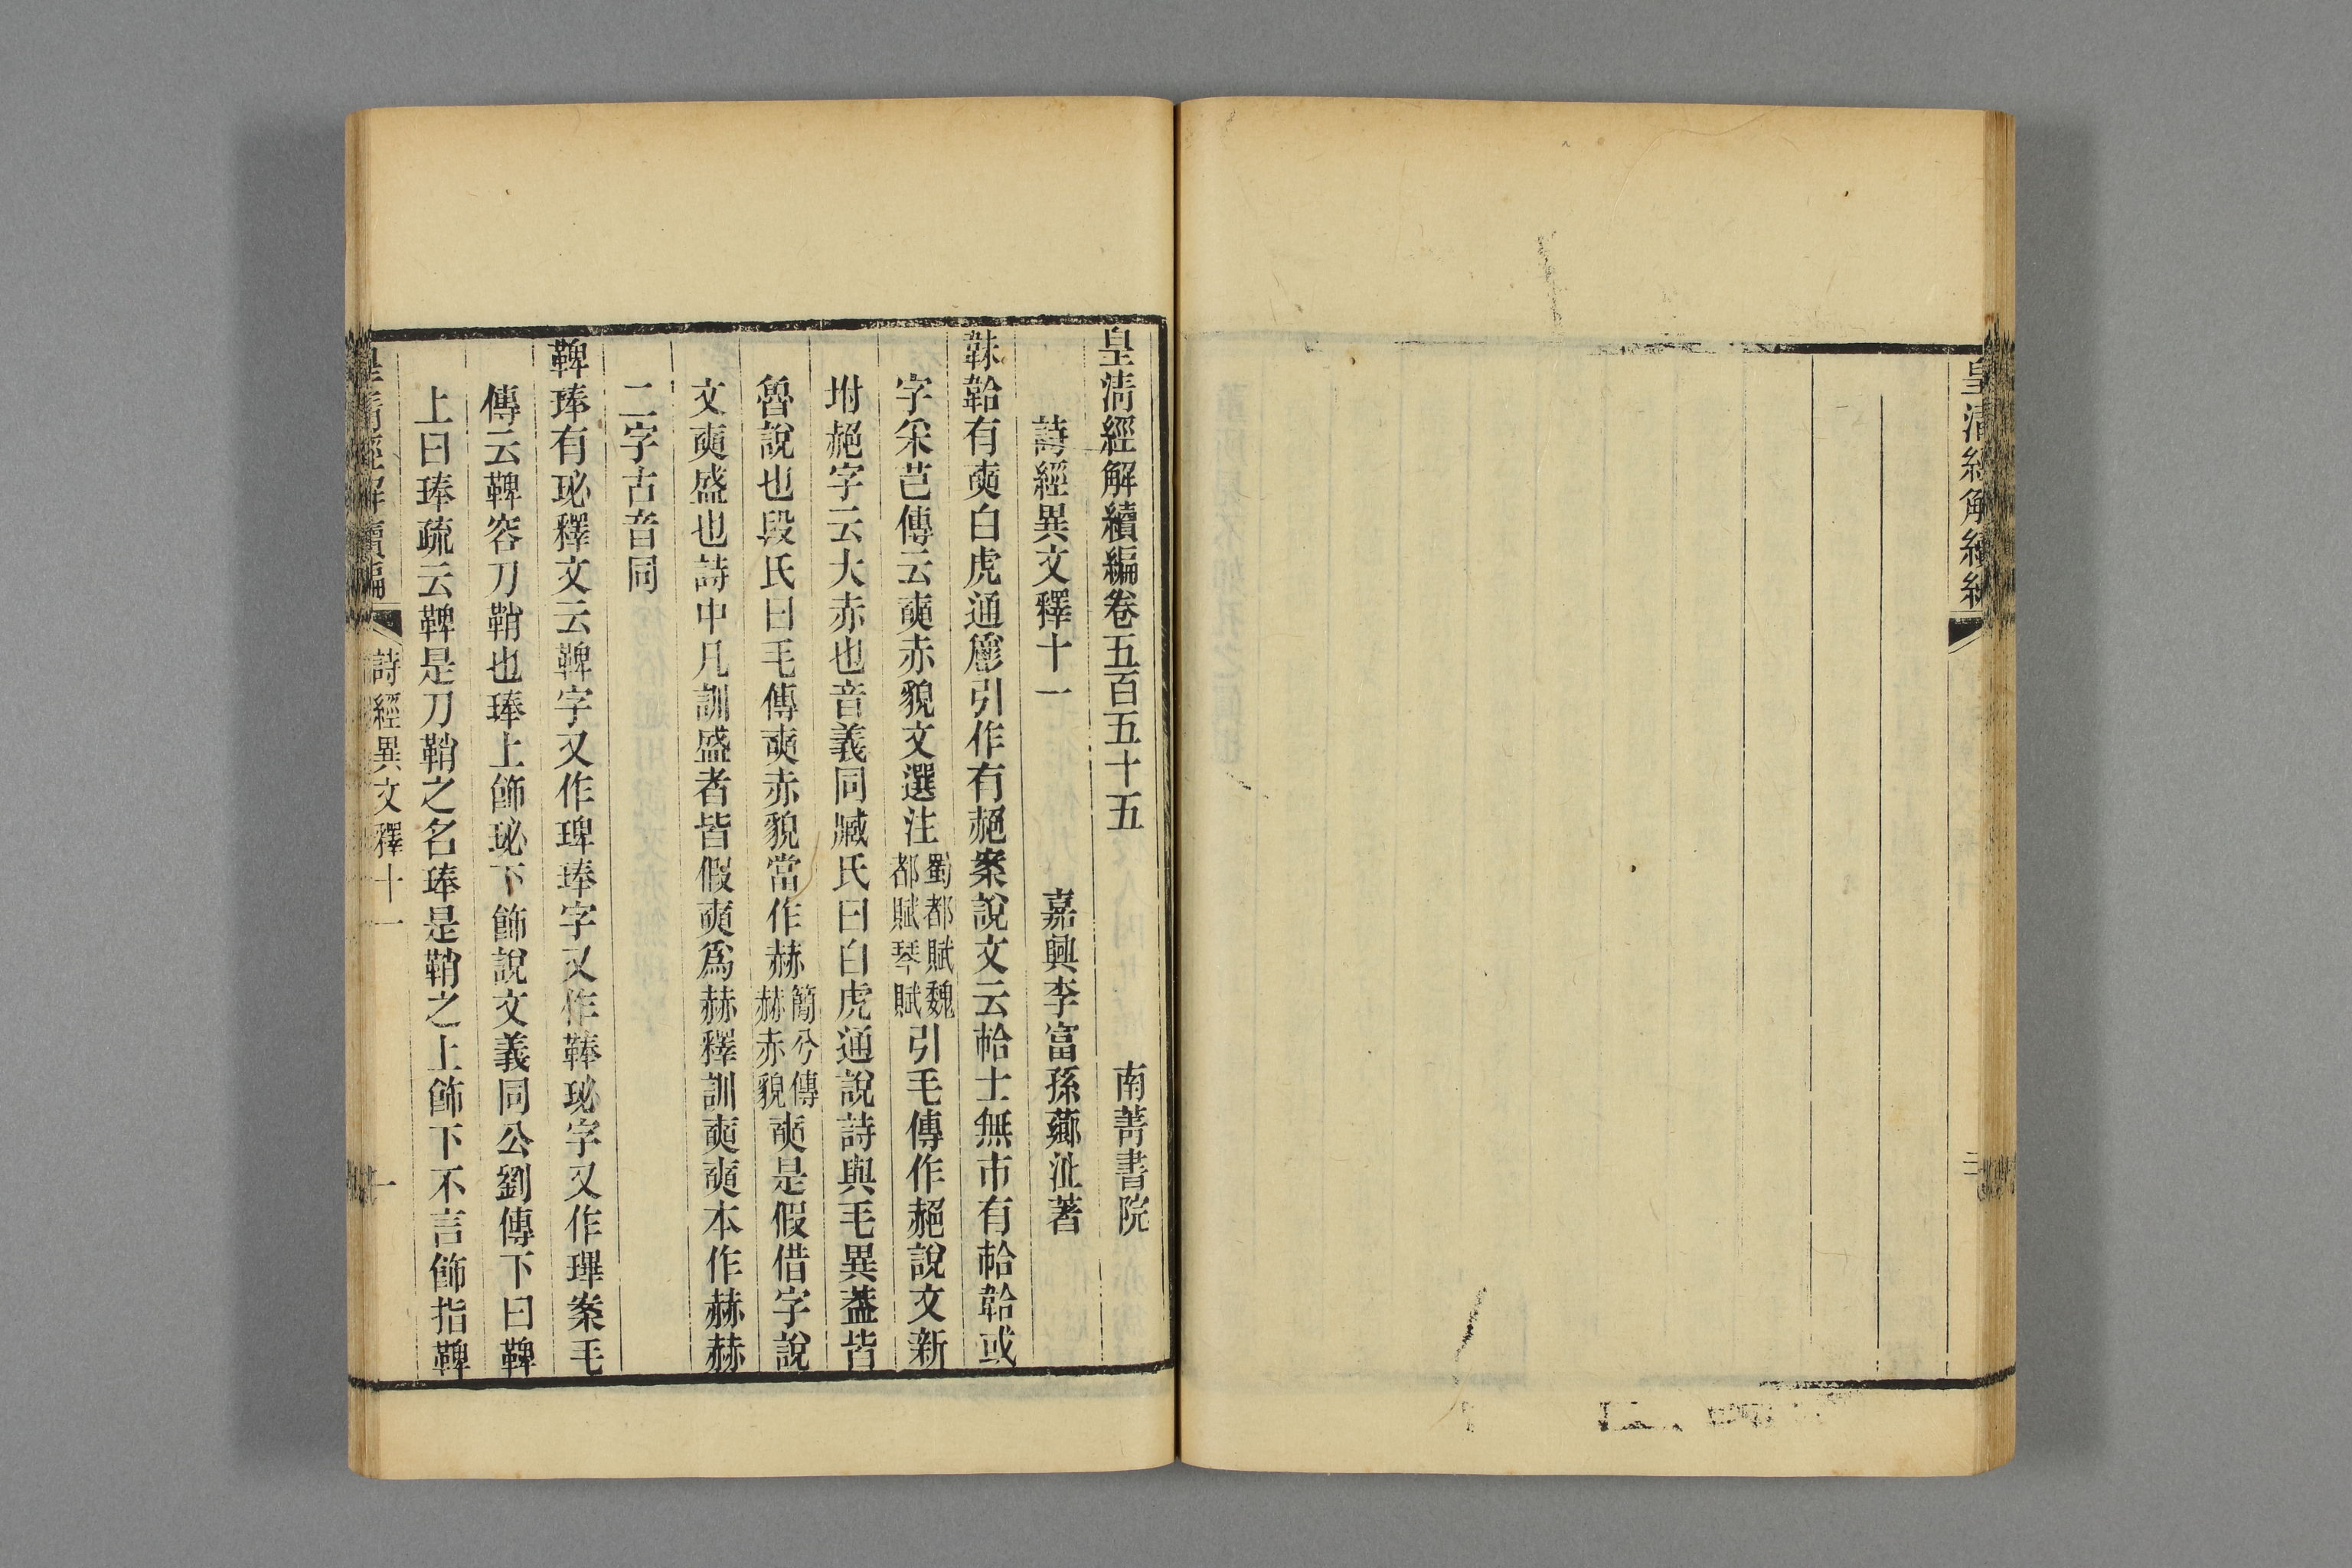 皇清經解續編
三
皇清經解續編卷五百五十五 南菁書院
詩經異文釋十一 嘉興李富孫薌沚著
韎韐有奭白虎通𢒈引作有赩案說文云帢士無巿有帢韐或
字采芑傳云奭赤貌文選注蜀都賦魏都賦琴賦引毛傳作赩說文新
坿赩字云大赤也音義同臧氏曰白虎通說詩與毛異葢皆
魯說也段氏曰毛傳奭赤貌當作赫簡兮傳赫赤貌奭是假借字說
文奭盛也詩中凡訓盛者皆假奭爲赫釋訓奭奭本作赫赫
二字古音同
鞞琫有珌釋文云鞞字又作琕琫字又作鞛珌字又作琿案毛
傳云鞞容刀鞘也琫上飾珌下飾說文義同公劉傳下曰鞞
上曰琫疏云鞞是刀鞘之名琫是鞘之上飾下不言飾指鞞
皇清經解續編 詩經異文釋十一 一